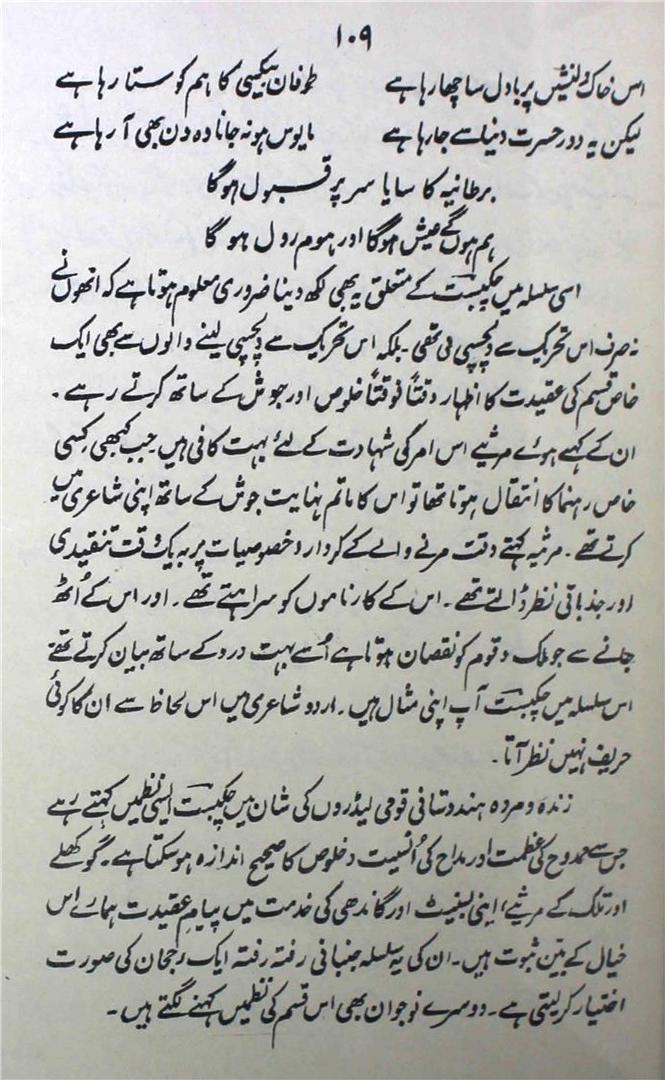 ۱۰۹
اس خاک دلنشیں پر بادل سا چھا رہا ہے طوفان بیکسی کا ہم کو ستا رہا ہے
لیکن یہ دور حسرت دنیا سے جا رہا ہے مایوس ہو نہ جانا وہ دن بھی آ رہا ہے
برطانیہ کا سایا سر پر قبول ہوگا
ہم ہوں گے عیش ہوگا اور ہوم رول ہوگا
اسی سلسلہ میں چکبست کے متعلق یہ بھی لکھ دینا ضروری معلوم ہوتا ہے کہ انھوں نے
نہ صرف اس تحریک سے دلچسپی لی تھی۔ بلکہ اس تحریک سے دلچسپی لینے والوں سے بھی ایک
خاص قسم کی عقیدت کا اظہار وقتاً فوقتاً خلوص اور جوش کے ساتھ کرتے رہے۔
ان کے کہے ہوئے مرثیے اس امر کی شہادت کے لئے بہت کافی ہیں جب کبھی کسی
خاص رہنما کا انتقال ہوتا تھا تو اس کا ماتم نہایت جوش کے ساتھ اپنی شاعری میں
کرتے تھے۔ مرثیہ کہتے وقت مرنے والے کے کردار و خصوصیات پر بہ یک وقت تنقیدی
اور جذباتی نظر ڈالتے تھے۔ اس کے کارناموں کو سراہتے تھے۔ اور اس کے اُٹھ
جانے سے جو ملک و قوم کو نقصان ہوتا ہے اُسے بہت درد کے ساتھ بیان کرتے تھے
اس سلسلہ میں چکبست آپ اپنی مثال ہیں۔ اردو شاعری میں اس لحاظ سے ان کا کوئی
حریف نہیں نظر آتا۔
زندہ و مردہ ہندوستانی قومی لیڈروں کی شان میں چکبست ایسی نظمیں کہتے رہے
جس سے ممدوح کی عظمت اور مداح کی اُنسیت و خلوص کا صحیح اندازہ ہو سکتا ہے۔ گوکھلے
اور تلک کے مرثیے، اینی بسنیٹ اور گاندھی کی خدمت میں پیام عقیدت ہمارے اس
خیال کے بین ثبوت ہیں۔ ان کی یہ سلسلہ جنبانی رفتہ رفتہ ایک رجحان کی صورت
اختیار کر لیتی ہے۔ دوسرے نوجوان بھی اس قسم کی نظمیں کہنے لگتے ہیں۔